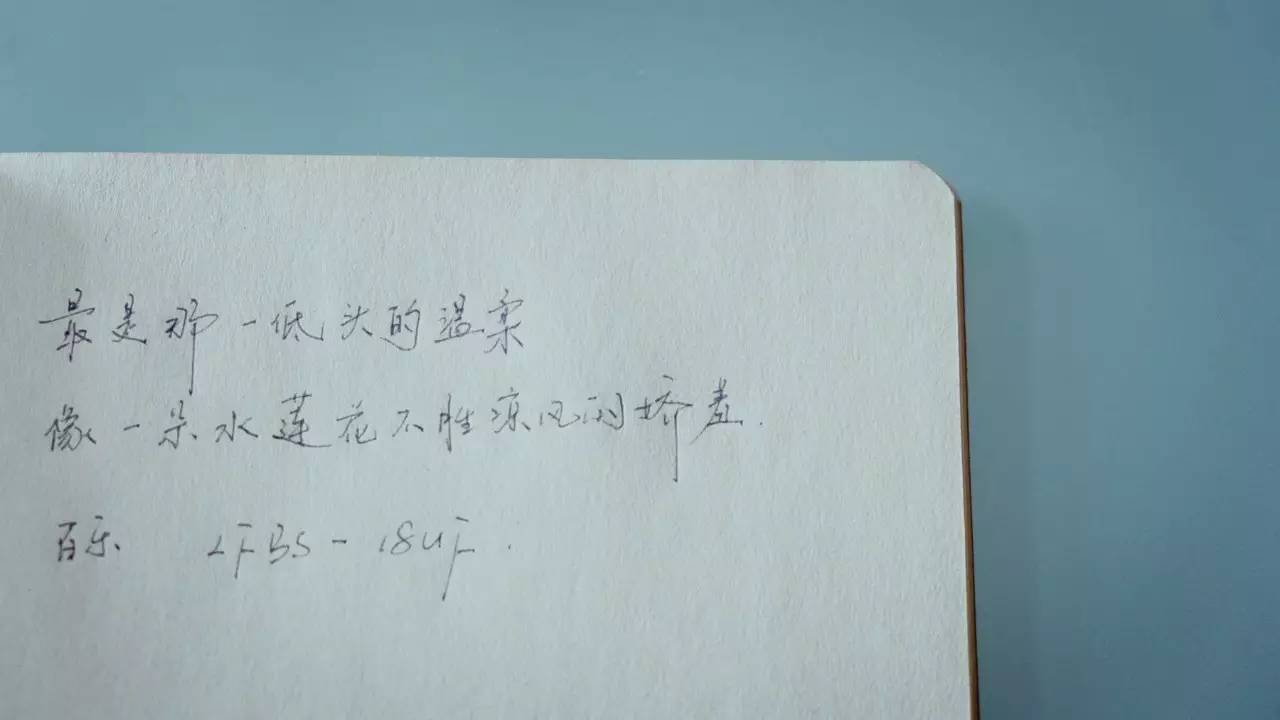 最是那一低头的温柔
像一朵水莲花不胜凉风的娇羞.
百乐 LFBS-18UF.